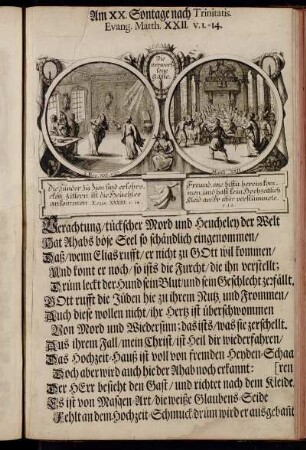 Am XX. Sontage nach Trinitatis.
Evang. Matth. XXII. v. 1.-14.
Die
verworf-
fene
Gäste.
Die Sünder zu Zion sind erschro-
cken, Zittern ist die Heuchler
ankommen
Freund, wie bistu herein kom-
men, und hast kein Hochzeitlich
Kleid an? Er aber verstummete.
Verachtung/ tückscher Mord und Heucheley der Welt
Hat Ahabs böse Seel so schändlich eingenommen/
Daß/ wenn Elias rufft/ er nicht zu GOtt wil kommen/
Und kömt er noch/ so ists die Furcht/ die ihn verstellt;
Drüm leckt der Hund sein Blut/ und sein Geschlecht zerfällt.
GOtt rufft die Jüden hie zu ihrem Nutz und Frommen/
Auch diese wollen nicht/ ihr Hertz ist überschwommen
Von Mord und Wiedersinn; das ists/ was sie zerschellt.
Aus ihrem Fall/ mein Christ/ ist Heil dir wiederfahren/
Das Hochzeit-Hauß ist voll von fremden Heyden-Schaa
Doch aber wird auch hie der Ahab noch erkannt: [ren
Der HErr besieht den Gast/ und richtet nach dem Kleide.
Es ist von Masqen-Art/ die weiße Glaubens-Seide
Fehlt an dem Hochzeit-Schmuck/ drüm wird er ausgebañt